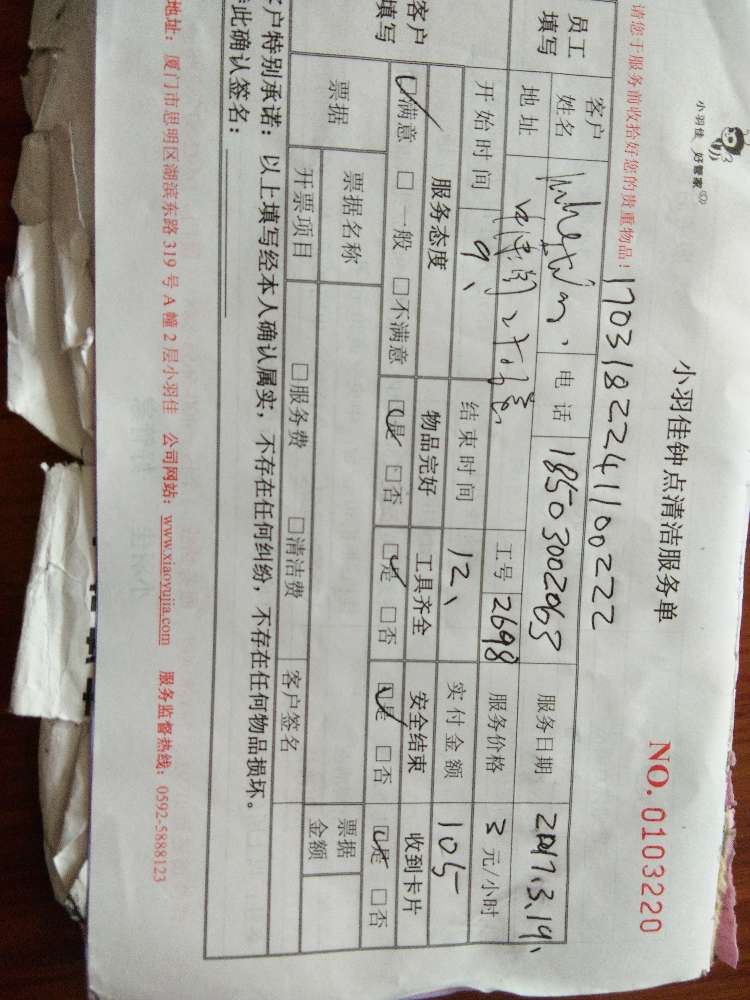 小羽佳 好管家
小羽佳钟点清洁服务单
NO. 0103220
请您于服务前收拾好您的贵重物品！
17031822241100222
员工填写
客户姓名 电话 18503002063 服务日期 2017.3.19、
地址 工号 2698 服务价格 3 元/小时
开始时间 9、 结束时间 12、 实付金额 105
客户填写
服务态度 物品完好 工具齐全 安全结束 收到卡片
☑满意 □一般 □不满意 ☑是 □否 ☑是 □否 ☑是 □否 ☑是 □否
票据 票据名称 票据金额
开票项目 □服务费 □清洁费 客户签名
客户特别承诺：以上填写经本人确认属实，不存在任何纠纷，不存在任何物品损坏。
此确认签名：
地址：厦门市思明区湖滨东路 319 号 A 幢 2 层小羽佳 公司网站：www.xiaoyujia.com 服务监督热线：0592-5888123